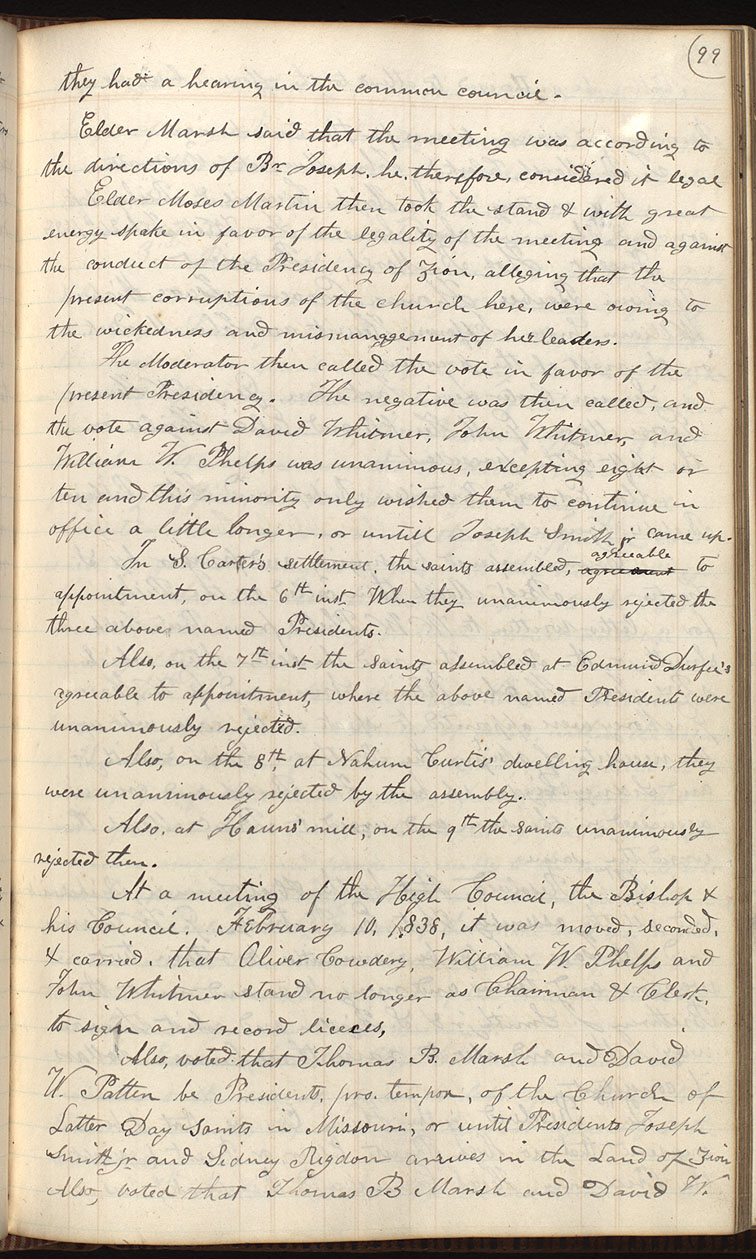 99
they had a hearing in the common council.
Elder Marsh said that the meeting was according to
the directions of Br. Joseph, he, therefore, considered it legal
Elder Moses Martin then took the stand & with great
energy spake in favor of the legality of the meeting and against
the conduct of the Presidency of Zion, alleging that the
present corruptions of the church here, were owing to
the wickedness and mismanggement of her leaders.
The Moderator then called the vote in favor of the
present Presidency. The negative was then called, and
the vote against David Whitmer, John Whitmer, and
William W. Phelps was unanimous, excepting eight or
ten and this minority only wished them to continue in
office a little longer, or untill Joseph Smith jr came up.
In S. Carter's settlement, the saints assembled, agreement agreeable to
appointment, on the 6th inst. When they unanimously rejected the
three above named Presidents.
Also, on the 7th inst the saints assembled at Edmund Durfee's
agreeable to appointment, where the above named Presidents were
unanimously rejected.
Also, on the 8th, at Nahum Curtis' dwelling house, they
were unanimously rejected by the assembly.
Also, at Hauns' mill, on the 9th the saints unanimously
rejected them.
At a meeting of the High Council, the Bishop &
his Council, February 10, 1838, it was moved, seconded,
& carried, that Oliver Cowdery, William W. Phelps and
John Whitmer stand no longer as Chairman & Clerk,
to sign and record liceces,
Also, voted that Thomas B. Marsh and David
W. Patten be Presidents, pro. tempor, of the Church of
Latter Day Saints in Missouri, or until Presidents Joseph
Smith jr and Sidney Rigdon arrives in the Land of Zion
Also, voted that Thomas B Marsh and David W.